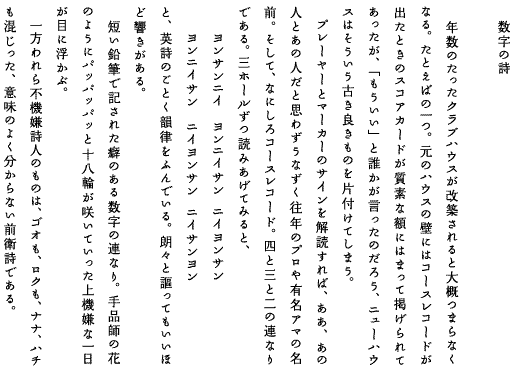 数字の詩
年数のたったクラブハウスが改築されると大概つまらなく
なる。たとえばの一つ。元のハウスの壁にはコースレコードが
出たときのスコアカードが質素な額にはまって掲げられて
あったが、「もういい」と誰かが言ったのだろう、ニューハウ
スはそういう古き良きものを片付けてしまう。
プレーヤーとマーカーのサインを解読すれば、ああ、あの
人とあの人だと思わずうなずく往年のプロや有名アマの名
前。そして、なにしろコースレコード。四と三と二の連なり
である。三ホールずつ読みあげてみると、
ヨンサンニイ ヨンニイサン ニイヨンサン
ヨンニイサン ニイヨンサン ニイサンヨン
と、英詩のごとく韻律をふんでいる。朗々と謳ってもいいほ
ど響きがある。
短い鉛筆で記された癖のある数字の連なり。手品師の花
のようにパッパッパッと十八輪が咲いていった上機嫌な一日
が目に浮かぶ。
一方われら不機嫌詩人のものは、ゴオも、ロクも、ナナ、ハチ
も混じった、意味のよく分からない前衛詩である。